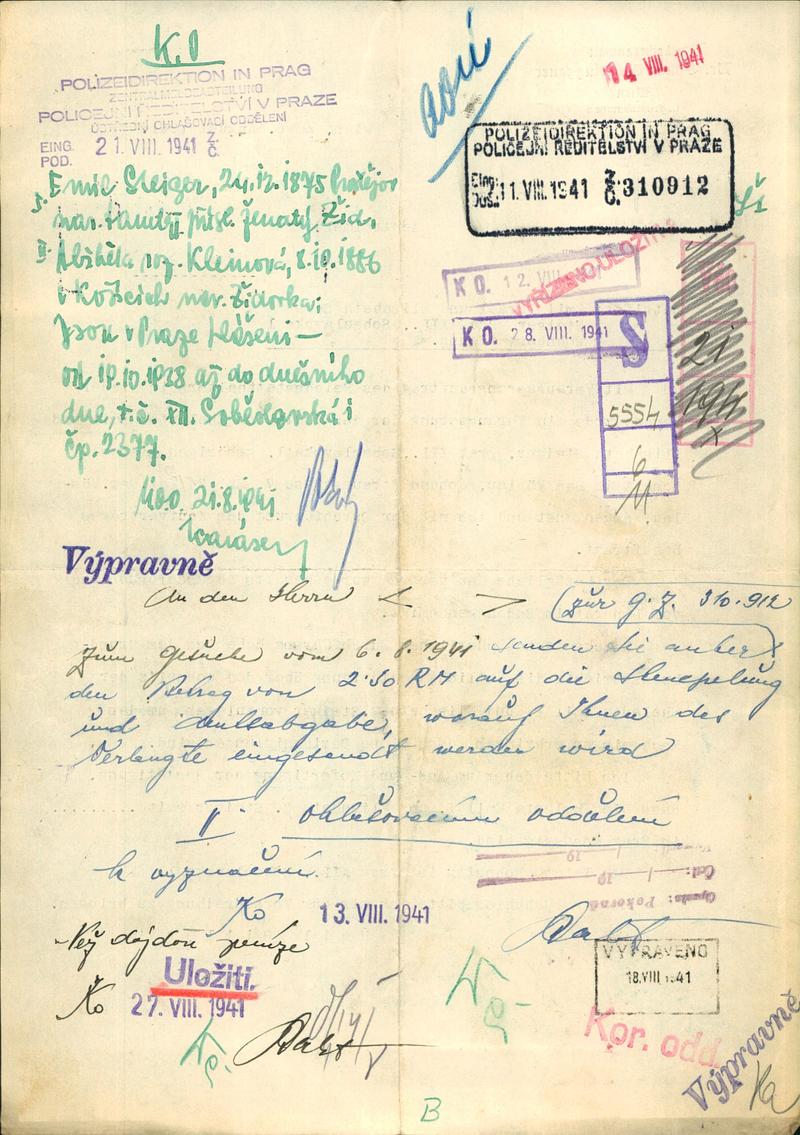 K.O
POLIZEIDIREKTION IN PRAG
ZENTRALMELDEABTEILUNG
POLICEJNÍ ŘEDITELSTVÍ V PRAZE
ÚSTŘEDNÍ OHLAŠOVACÍ ODDĚLENÍ
EING.
POD. 21. VIII. 1941 Z. Č.
14 VIII. 1941
POLIZEIDIREKTION IN PRAG
POLICEJNÍ ŘEDITELSTVÍ V PRAZE
Eing.
Doš. 11. VIII. 1941 Z. Č. 310912
I. Emil Steiger, 24.12.1875
ženatý, Žid.
II. Alžběta roz. Kleinová, 8.10.1886
v Košicích nar. Židovka.
Jsou v Praze hlášeni –
od 19.10.1938 až do dnešního
dne, t.č. XII. Soběslavská
čp. 2377.
21.8.1941
VYŘÍZENO ULOŽITI
K O. 12. VIII. 1941
K O. 28. VIII. 1941
S
5554
6
11
21
194
x
Výpravně
An den Herrn < > (zur G.Z. 310.912
Zum Gesuche vom 6.8.1941 senden Sie anher
den Betrag von 2·50 RM auf die Stempelung
und Amtsabgabe, worauf Ihnen das
Verlangte eingesandt werden wird
II. ohlašovacímu oddělení
k vyznačení.
Ko 13. VIII. 1941
Než dojdou peníze
Uložiti.
Ko 27. VIII. 1941
19 19
Čál:
Opsala: Pokorná
VYPRAVENO
18. VIII 1941
Kor. odd.
Výpravně
B